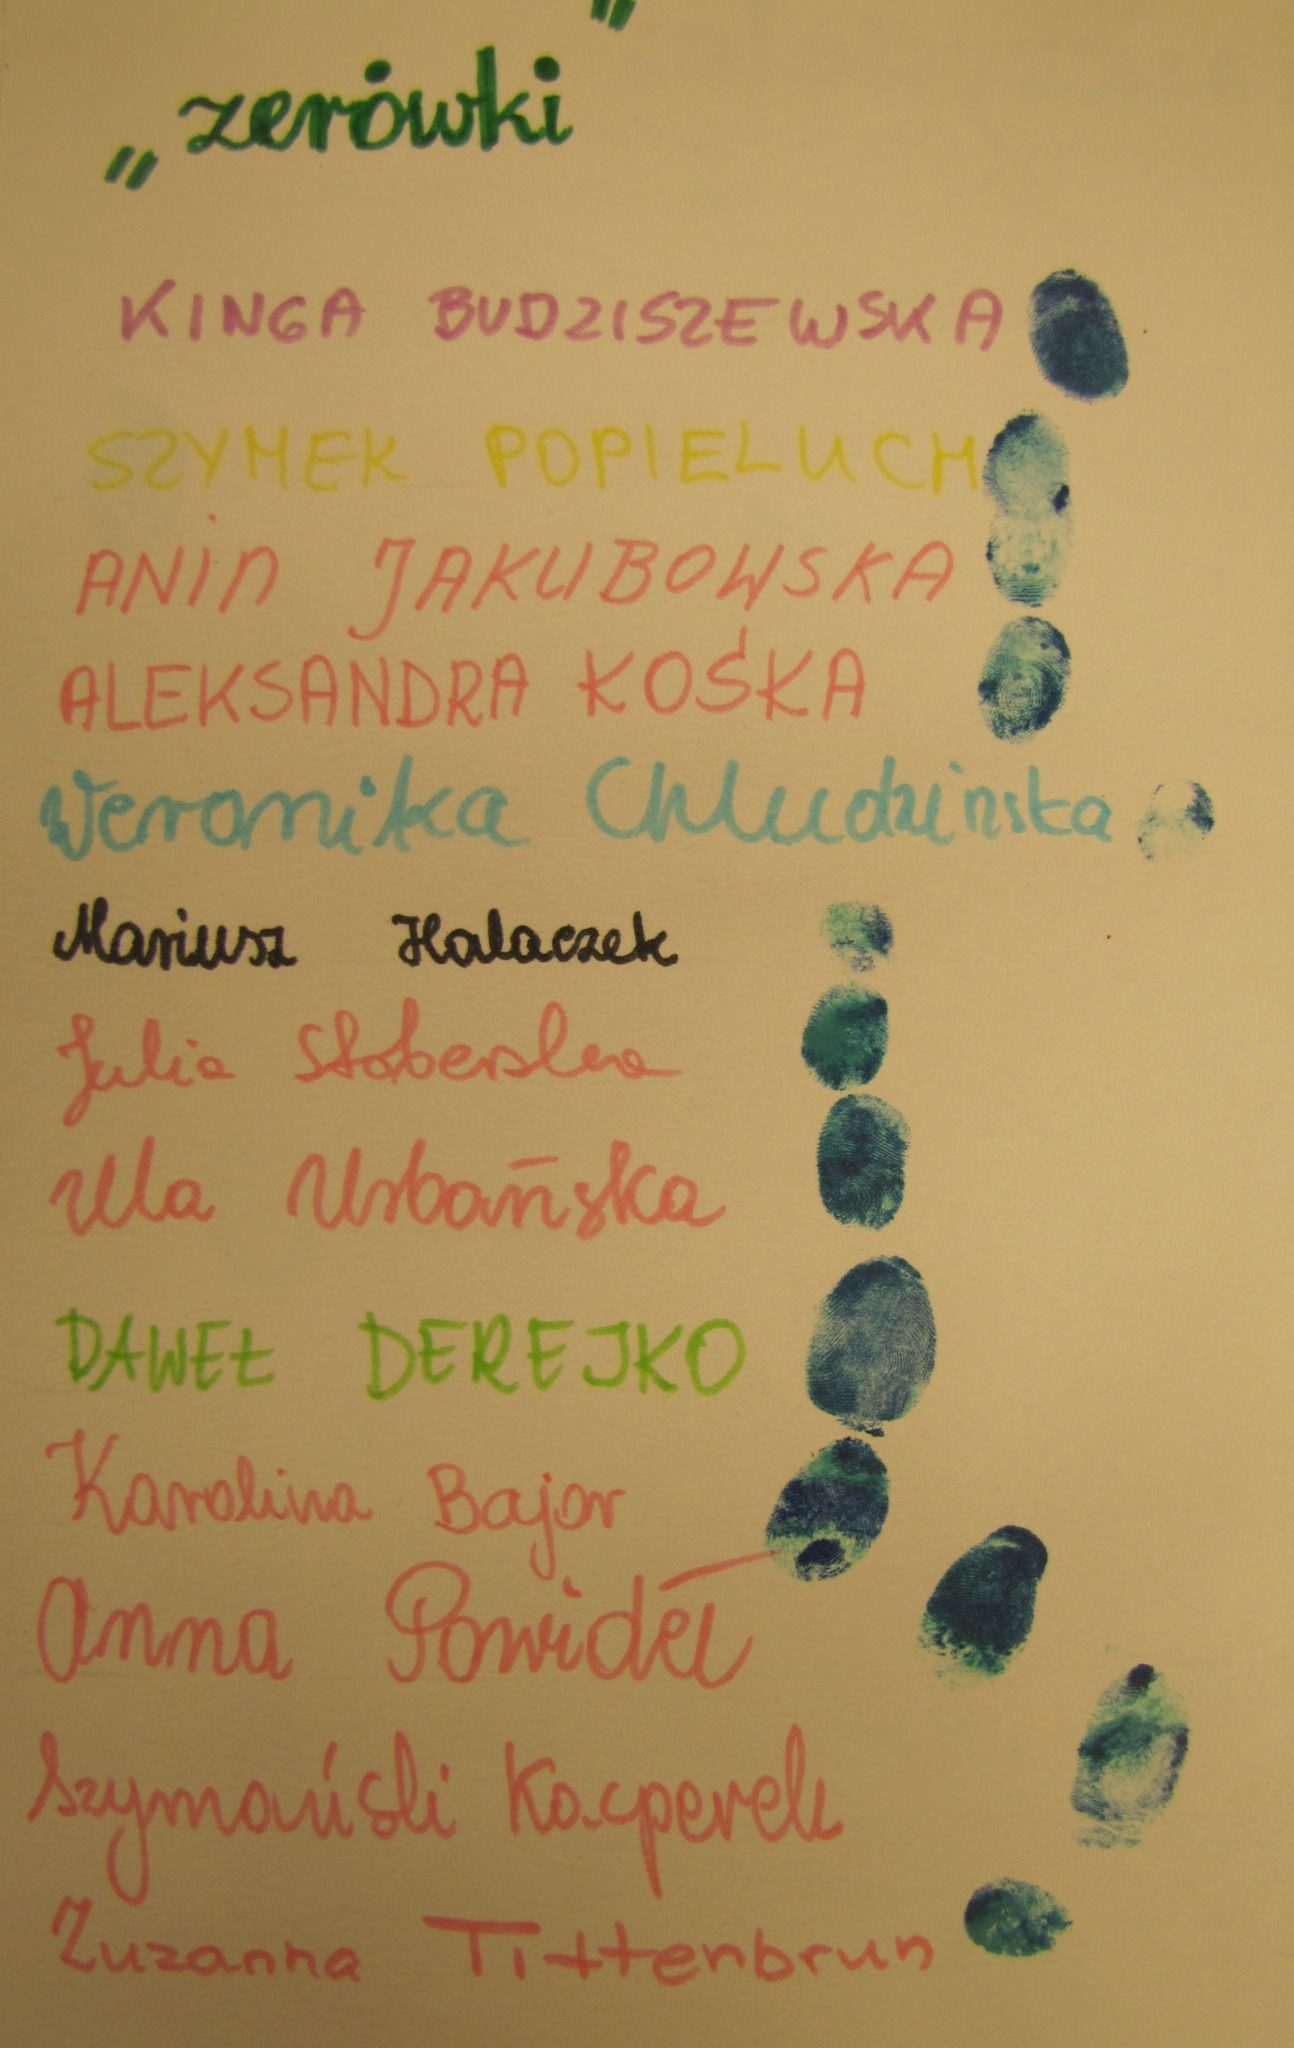 „zerówki”
KINGA BUDZISZEWSKA
SZYMEK POPIELUCH
ANIA JAKUBOWSKA
ALEKSANDRA KOŚKA
Weronika Chludzinska
Mariusz Halaczek
Julia
Ula Urbańska
PAWEŁ DEREJKO
Karolina Bajor
Anna Powideł
Szymański Kacperek
Zuzanna Tittenbrun